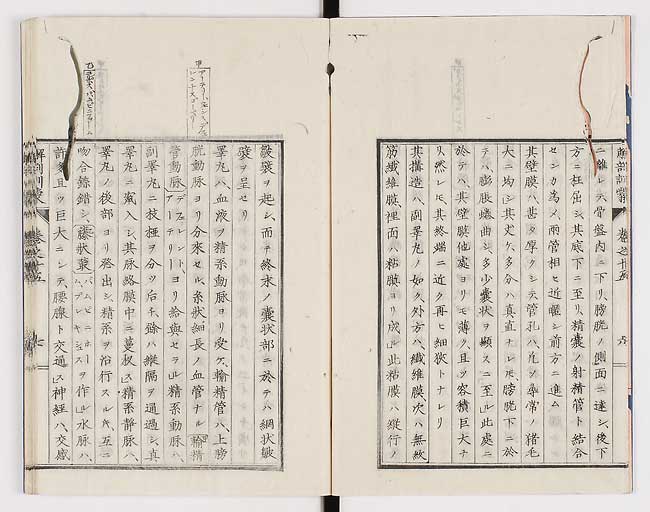 ニ離レテ骨盤内ニ下リ、膀胱ノ側面ニ達シ、後下
方ニ枉屈シ、其底下ニ至リ、精嚢ノ射精管ト結合
センカ為メ、両管相ヒ近幄シ前方ニ進ム
其壁膜ハ、甚タ厚クシテ管孔ハ、凡ソ尋常ノ猪毛
大ニ均シ」其丈ケ多分ハ真直ナレモ、膀胱下ニ於
テハ、膨脹蜷曲シ、多少嚢状ヲ顕スニ至ル」此處ニ
於テハ、其壁膜他處ヨリモ薄ク且ツ容積巨大ナ
リ、然レモ其終端ニ近ク再ヒ細狭トナレリ
其構造ハ、副睾丸ノ如ク、外方ハ、纎維膜、次ハ無紋
筋纎維膜、裡面ハ、粘膜ヨリ成ル」此粘膜ハ縦行ノ
皺襞ヲ起シ、而テ終末ノ嚢状部ニ於テハ網状皺
襞ヲ呈セリ
睾丸ハ、血液ヲ精系動脉ヨリ受ケ、輸精管ハ、上膀
胱動脉ヨリ分來セル、糸状細長ノ血管ナル輸精
管動脉デフェレント、アーテリーヨリ給與セラル」精系動脉ハ、
副睾丸ニ枝椏ヲ分ツ后チ、餘ハ縦隔ヲ通過シ、真
睾丸ニ竄入シ、其脉絡膜中ニ蔓枝ス」精系静脉ハ、
睾丸ノ後部ヨリ発出シ、精系ヲ沿行スル𬼀、互ニ
吻合錯綜シ、藤状叢パムピニホーム、プレキシスヲ作ル」水脉ハ、
許多且ツ巨大ニシテ、腰腺ト交通ス」神経ハ、交感
解剖訓蒙 巻之十五 七